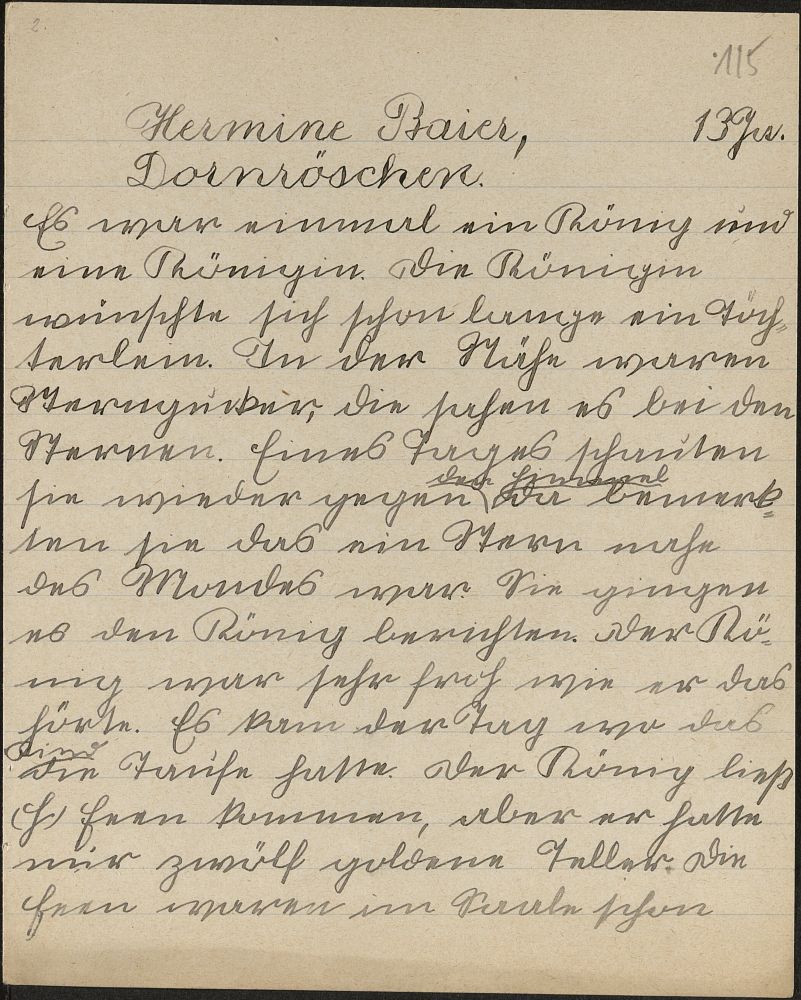 2.
115
Hermine Baier, 13 Ja.
Dornröschen.
Es war einmal ein König und
eine Königin. Die Königin
wünschte sich schon lange ein Töch-
terlein. In der Nähe waren
Sterngucker, die sahen es bei den
Sternen. Eines Tages schauten
den Himmel
sie wieder gegen da bemerk-
ten sie das ein Stern nahe
des Mondes war. Sie gingen
es den König berichten. Der Kö-
nig war sehr froh wie er das
hörte. Es kam der Tag wo das
Kind
die Taufe hatte. Der König ließ
(h) Feen kommen, aber er hatte
nur zwölf goldene Teller. Die
Feen waren im Saale schon